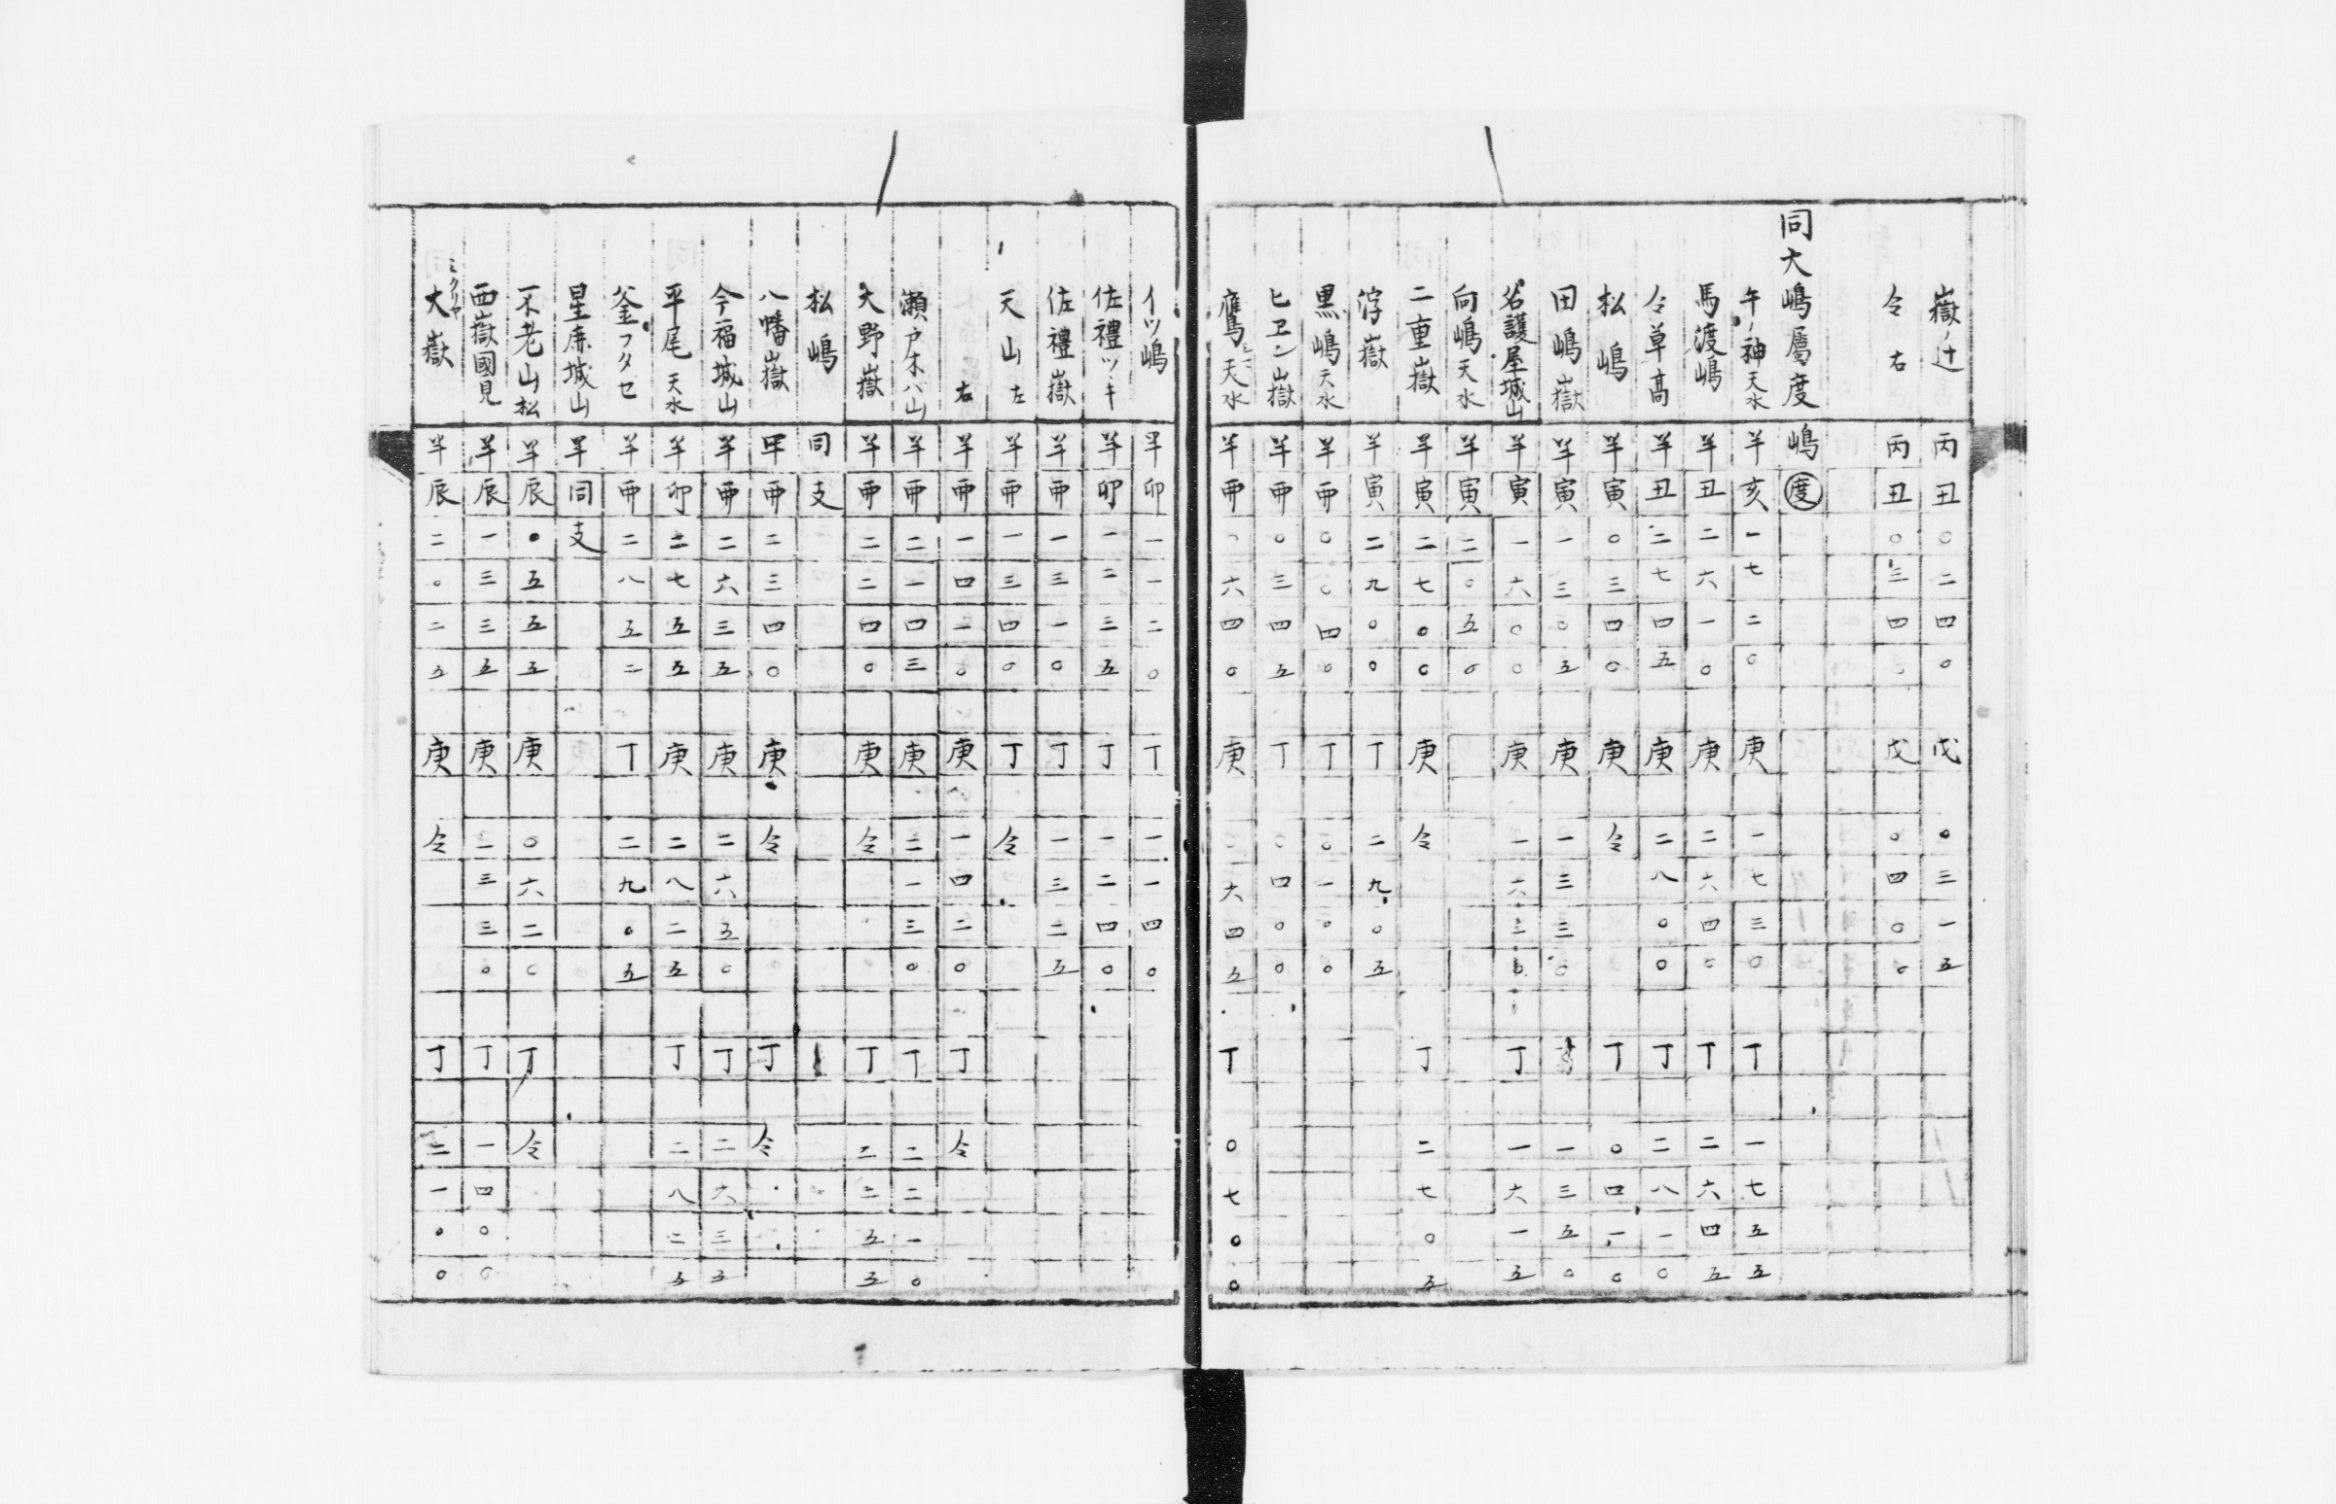 嶽ノ辻 丙 丑 〇 二 四 〇 戊 〇 三 一 五
仝 右 丙 丑 〇 三 四 〇 戊 〇 四 〇 〇
同大嶋屬度 嶋 度
午ノ神天水 半 亥 一 七 二 〇 庚 一 七 三 〇 丁 一 七 五 五
馬渡嶋 半 丑 二 六 一 〇 庚 二 六 四 〇 丁 二 六 四 五
仝草高 半 丑 二 七 四 五 庚 二 八 〇 〇 丁 二 八 一 〇
松嶋 半 寅 〇 三 四 〇 庚 仝 丁 〇 四 一 〇
田嶋嶽 半 寅 一 三 〇 五 庚 一 三 三 〇 一 三 五 〇
名護屋城山 半 寅 一 六 〇 〇 庚 一 六 三 〇 丁 一 六 一 五
向嶋天水 半 寅 二 〇 五 〇
二重嶽 半 寅 二 七 〇 〇 庚 仝 丁 二 七 〇 五
浮嶽 半 寅 二 九 〇 〇 丁 二 九 〇 五
黒嶋天水 半 卯 〇 〇 四 〇 丁 〇 一 〇 〇
ヒヱン山嶽 半 卯 〇 三 四 五 丁 〇 四 〇 〇
鷹嶋天水 半 卯 〇 六 四 〇 庚 〇 六 四 五 丁 〇 七 〇 〇
イツ嶋 半 卯 一 一 二 〇 丁 一 一 四 〇
佐禮ツヽキ 半 卯 一 二 三 五 丁 一 二 四 〇
佐禮嶽 半 卯 一 三 一 〇 丁 一 三 二 五
天山 左 半 卯 一 三 四 〇 丁 仝
右 半 卯 一 四 一 〇 庚 一 四 二 〇 丁 仝
瀬戸木バ山 半 卯 二 一 四 三 庚 二 一 三 〇 丁 二 二 一 〇
大野嶽 半 卯 二 二 四 〇 庚 仝 丁 二 二 五 五
松嶋 同 支
八幡嶽 半 卯 二 三 四 〇 庚 仝 丁 仝
今福城山 半 卯 二 六 三 五 庚 二 六 五 〇 丁 二 六 三 五
平尾天水 半 卯 二 七 五 五 庚 二 八 二 五 丁 二 八 二 五
釜フタセ 半 卯 二 八 五 二 丁 二 九 〇 五
星鹿城山 半 同 支
不老山松 半 辰 〇 五 五 五 庚 〇 六 二 〇 丁 仝
西嶽國見 半 辰 一 三 三 五 庚 一 三 三 〇 丁 一 四 〇 〇
ミクリヤ
大嶽 半 辰 二 〇 二 五 庚 仝 丁 二 一 〇 〇